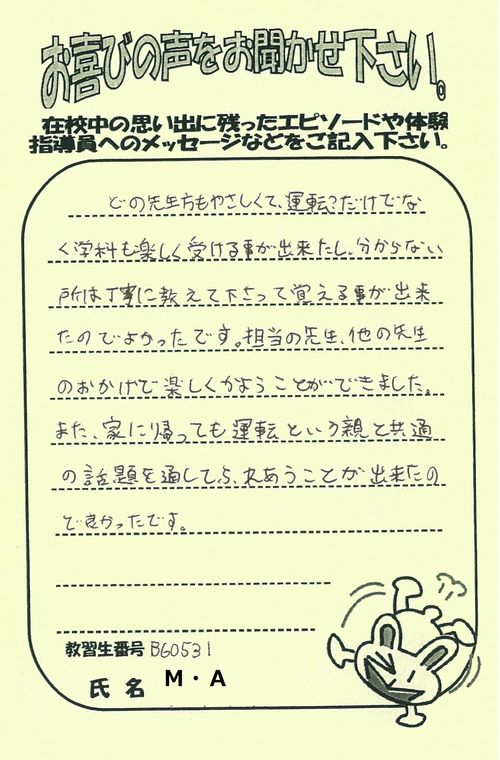 お喜びの声をお聞かせ下さい。
在校中の思い出に残ったエピソードや体験
指導員へのメッセージなどをご記入下さい。
どの先生方もやさしくて、運転?だけでな
く学科も楽しく受ける事が出来たし、分からない
所は丁寧に教えて下さって覚える事が出来
たのでよかったです。担当の先生、他の先生
のおかげで楽しくかようことができました。
また、家に帰っても運転という親と共通
の話題を通してふれあうことが出来たの
で良かったです。
教習生番号 B60531
氏名 M・A